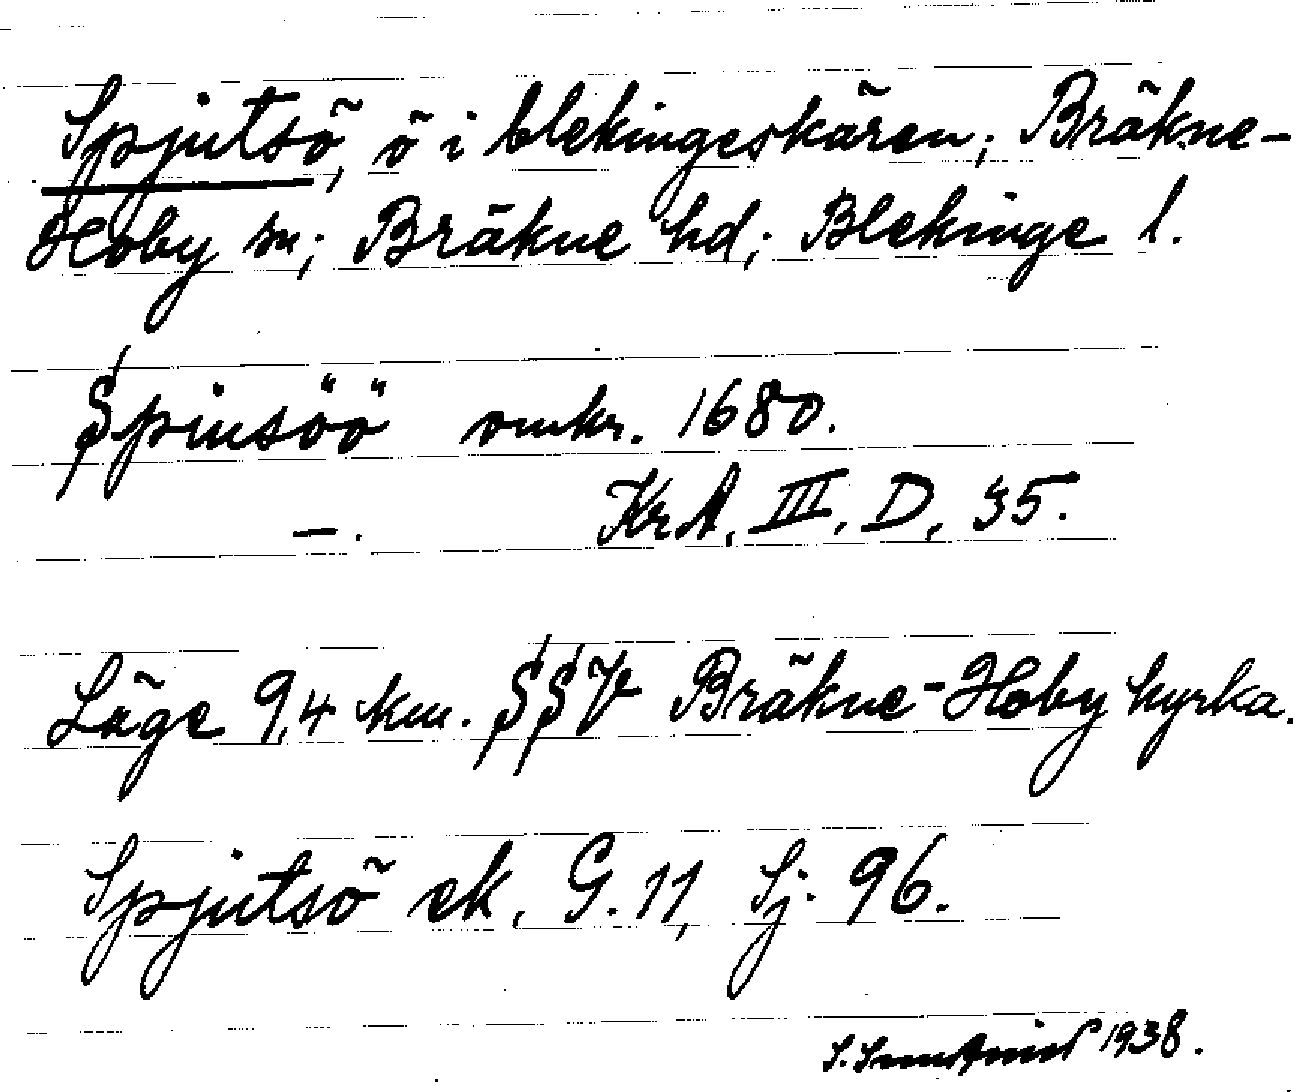 Spjutsö, ö i blekingeskären; Bräkne-
Hoby sn; Bräkne hd; Blekinge l.
Spiusöö omkr. 1680.
—. KrA, III, D, 35.
Läge 9,4 km. SSV Bräkne-Hoby kyrka.
Spjutsö ek, G. 11, Sj. 96.
S. 1938.